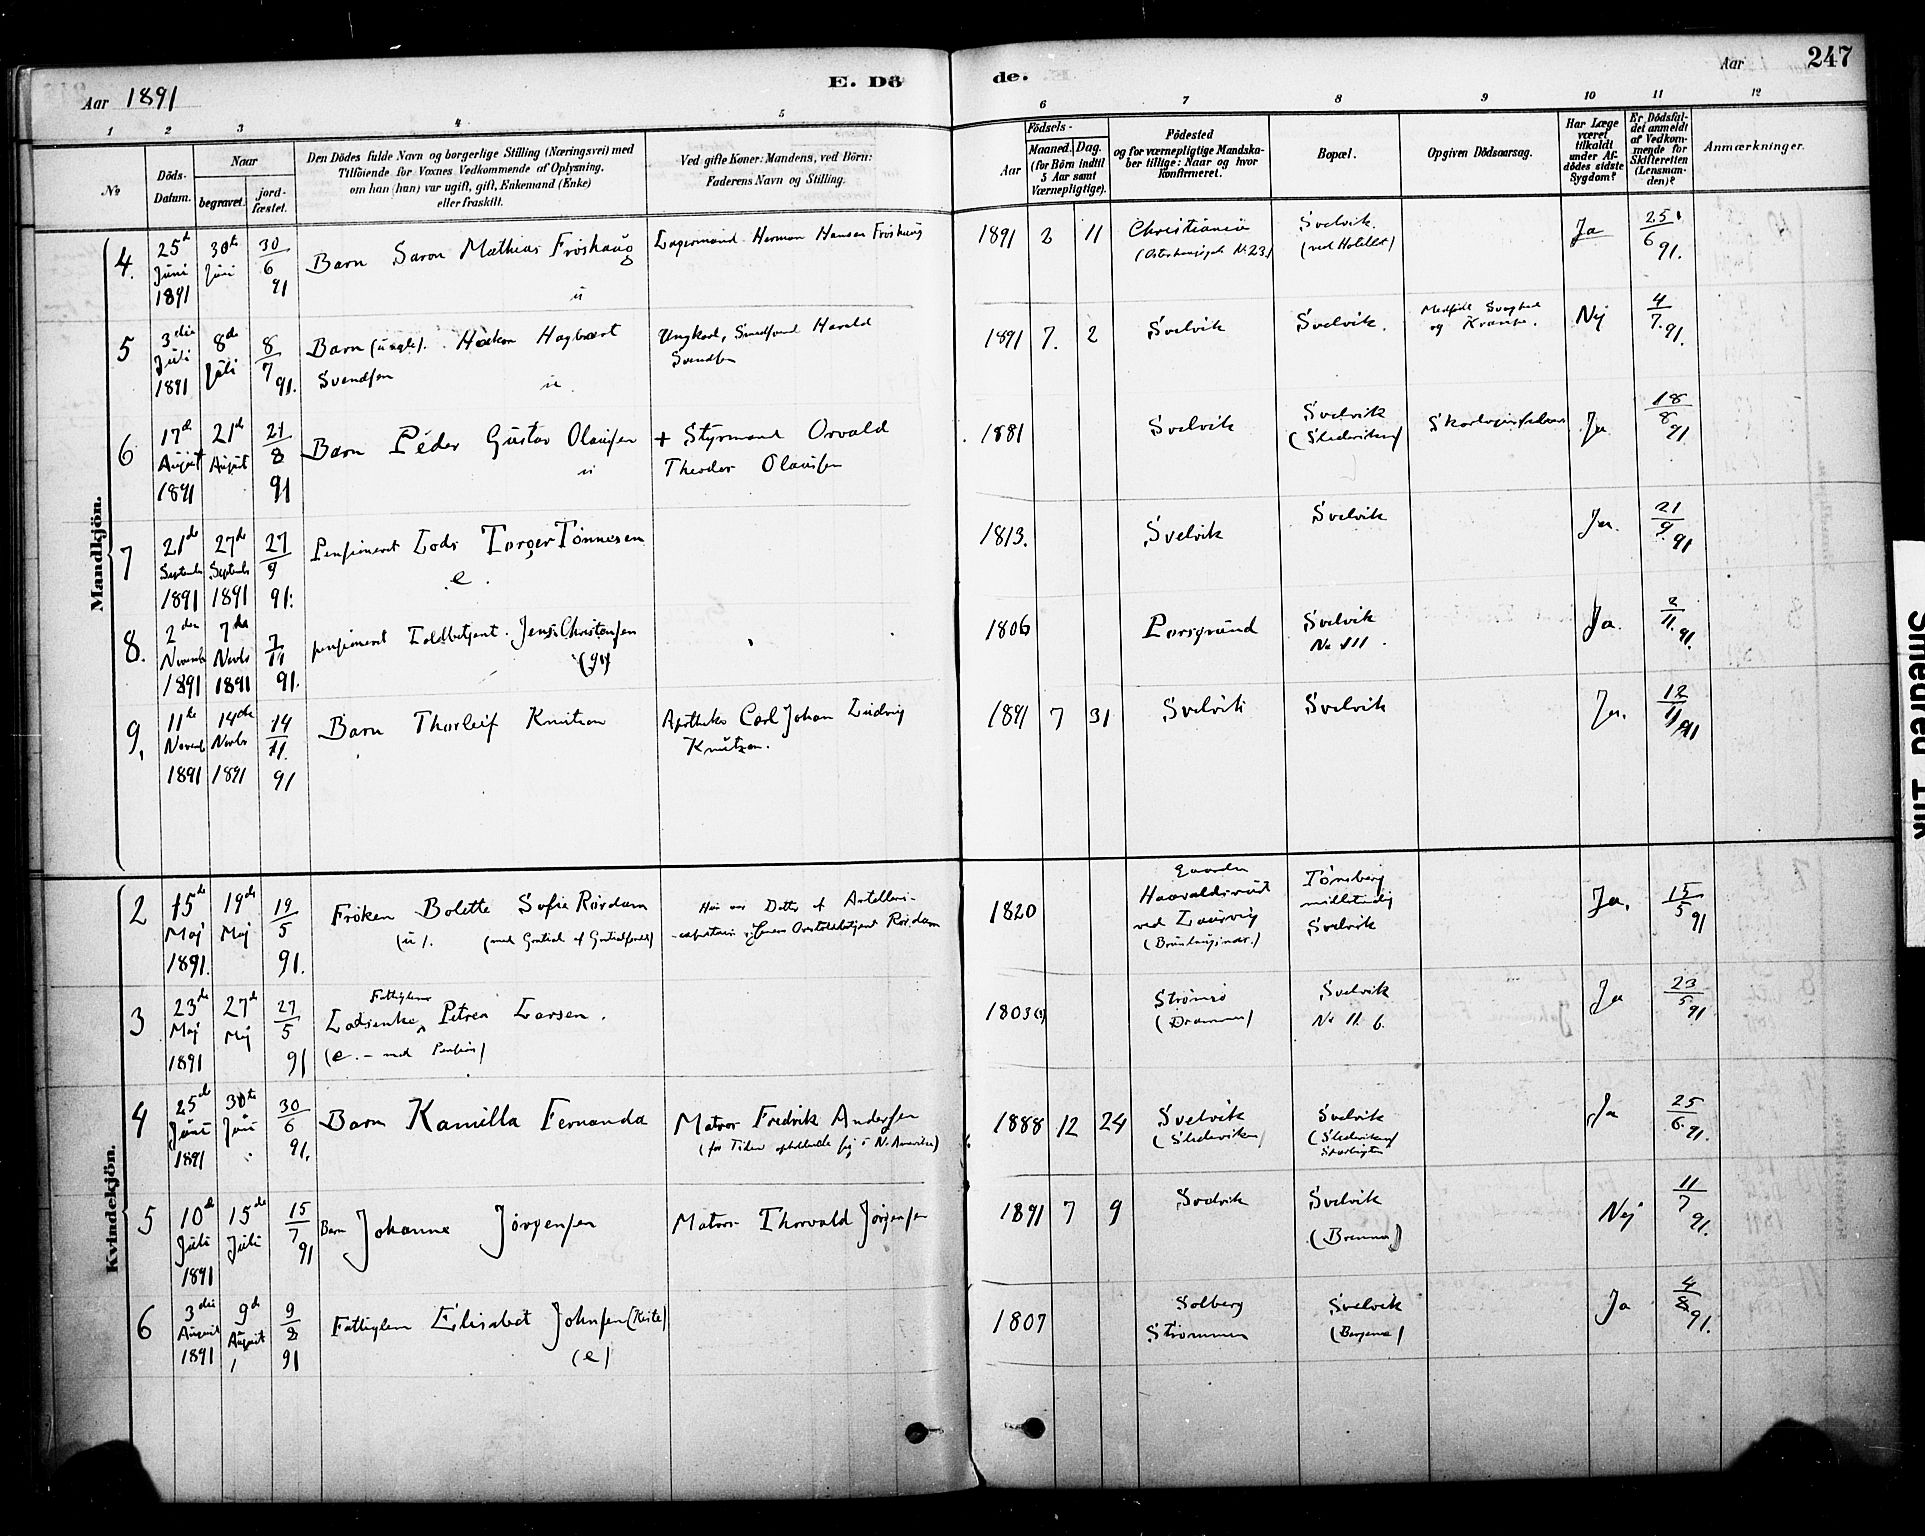 Aar 1891
E. Dö
de.
Aar
247
1 2 3 4 5 6 7 8 9 10 11 12
No
Döds-
Datum.
Naar
begravet.
jord-
fæstet.
Den Dödes fulde Navn og borgerlige Stilling (Næringsvei) med
Tilföiende for Voxnes Vedkommende af Oplysning,
om han (hun) var ugift, gift, Enkemand (Enke)
eller fraskilt.
Ved gifte Koner: Mandens, ved Börn:
Faderens Navn og Stilling.
Födsels-
Aar
Maaned.
Dag.
(for Börn indtil
5 Aar samt
Værnepligtige).
Födested
og for værnepligtige Mandska-
ber tillige: Naar og hvor
Konfirmeret.
Bopæl.
Opgiven Dödsaarsag.
Har Læge
været
tilkaldt
under Af-
dödes sidste
Sygdom?
Er Dödsfal-
det anmeldt
af Vedkom-
mende for
Skifteretten
(Lensman-
den)?
Anmærkninger.
Mandkjön.
4. 25de Juni 1891 30te Juni 30/6 91 Barn Saron Mathias Frøshaug u Herman Hansen Frøshaug 1891 2 11 Christiania Svelvik. Ja 25/6 91.
5 3die Juli 1891 8de Juli 8/7 91. Barn Haakon Hagbart Svendsen u. Ungkarl, Harald Svendsen 1891 7. 2 Svelvik Svelvik. Medfødt Svaghed og Nej 4/7. 91.
6 17de August 1891 21de August 21/8 91 Barn Peder Gustav Olausen u + Styrmand Orvald Theodor Olausen 1881 Svelvik Svelvik Ja 18/8 91
7 21de September 1891 27de September 1891 27/9 91. Pensioneret Lods Torger Tønnesen e. 1813. Svelvik Svelvik Ja. 21/9. 91
8. 2den November 1891 7de Novbr 1891 7/11 91. pensioneret Toldbetjent. Jens Christensen 1806 Porsgrund Svelvik Ja. 2/11. 91.
9, 11te November 1891 14de Novbr 1891 14/11. 91 Barn Thorleif Knutzon Apotheker Carl Johan Ludvig Knutzon. 1891 7 31 Svelvik Svelvik Ja. 12/11 91
Kvindekjön.
2 15de Maj 1891. 19de Maj 19/5 91. Frøken Bolette Sofie Rørdam (u). Datter af Rørdam 1820 Gaarden ved Laurvig Tønsberg Svelvik Ja. 15/5 91
3 23de Maj 1891 27de Maj 27/5 91 Fattiglem Lodsenke Petrea Larsen. (e. - med Pension) 1803 Strømsø (Drammen) Svelvik No 11. 6. Ja 23/5 91
4 25de Juni 1891 30te Juni 30/6 91. Barn Kamilla Fernanda Matros Fredrik Andersen (for Tiden opholdende sig i N. Amerika) 1888 12 24 Svelvik Svelvik Ja 25/6. 91.
5 10de Juli 1891 15de Juli 15/7 91 Barn Johanne Jørgensen Matros Thorvald Jørgensen 1891 7 9 Svelvik Svelvik Nej 11/7 91.
6 3die August 1891 9de August 9/8 91 Fattiglem Elisabet Johnsen (e) 1807 Solberg Strømmen Svelvik Ja 4/8 91.
Smedred Ink